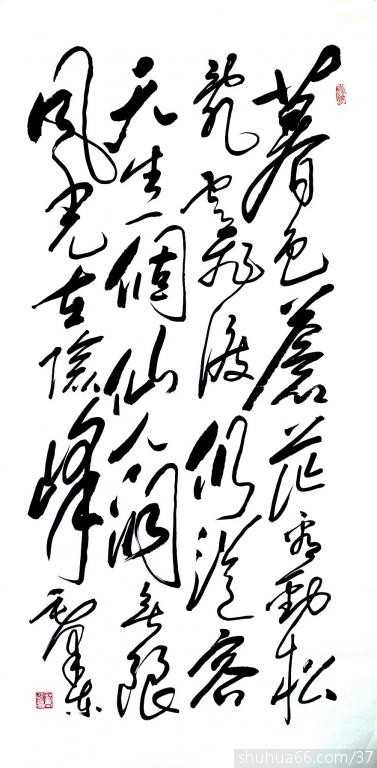 暮色蒼茫看勁松
亂雲飛渡仍從容
天生一個仙人洞無限
風光在險峰 毛澤東
shuhua66.com/37